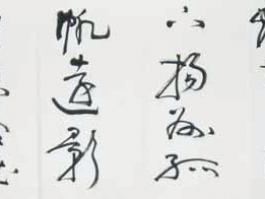 下揚州孤
帆遠影